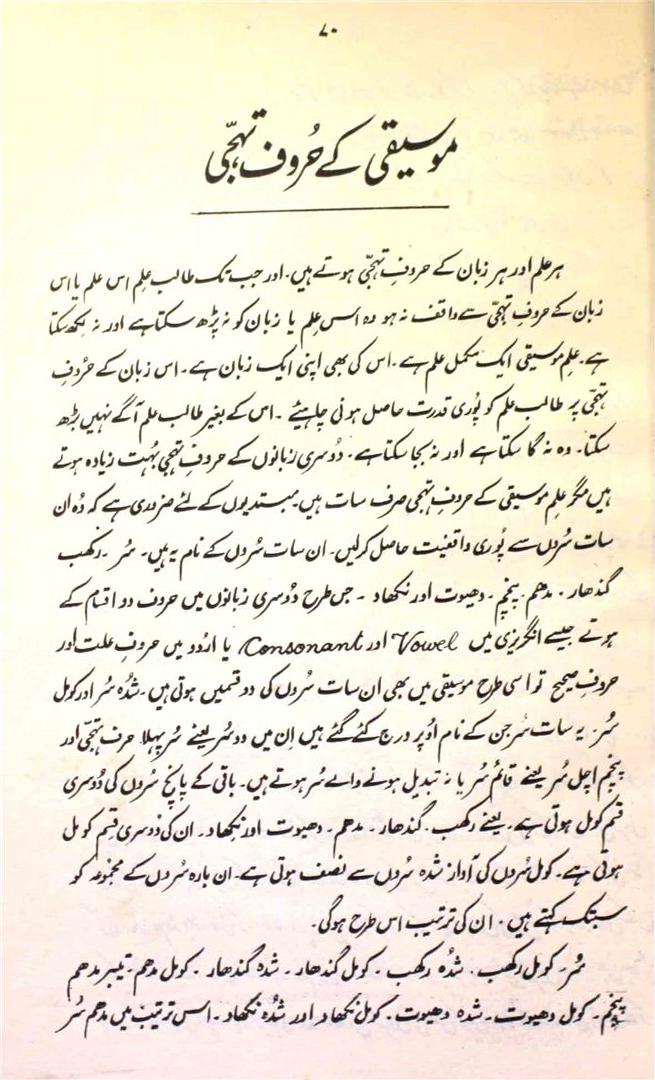 ۷۰
موسیقی کے حُروفِ تہجّی
ہر علم اور ہر زبان کے حروفِ تہجّی ہوتے ہیں۔ اور جب تک طالب علِم اس علم یا اس
زبان کے حروفِ تہجّی سے واقف نہ ہو وہ اس علِم یا زبان کو نہ پڑھ سکتا ہے اور نہ لکھ سکتا
ہے۔ علِم موسیقی ایک مکمل علم ہے۔ اس کی بھی اپنی ایک زبان ہے۔ اس زبان کے حرُوفِ
تہجّی پر طالب علم کو پُوری قدرت حاصل ہونی چاہیئے۔ اس کے بغیر طالب علم آگے نہیں بڑھ
سکتا۔ وہ نہ گا سکتا ہے اور نہ بجا سکتا ہے۔ دُوسری زبانوں کے حروفِ تہجی بہُت زیادہ ہوتے
ہیں مگر علِم موسیقی کے حروفِ تہجی صرف سات ہیں۔ مبتدیوں کے لئے ضروری ہے کہ وُہ ان
سات سُروں سے پُوری واقفیت حاصل کرلیں۔ ان سات سُروں کے نام یہ ہیں۔ سُر۔ رکھب
گندھار۔ مدھم۔ پنچم۔ دھیوت اور نکھاد۔ جس طرح دُوسری زبانوں میں حروف دو اقسام کے
ہوتے جیسے انگریزی میں Vowel اور Consonant یا اردو میں حروفِ علت اور
حروفِ صحیح تو اسی طرح موسیقی میں بھی ان سات سُروں کی دو قسمیں ہوتی ہیں۔ شُدہ سُر اور کول
سُر۔ یہ سات سُر جن کے نام اُوپر درج کئے گئے ہیں اِن میں دو سُر یعنے سُر پہلا حرف تہجّی اور
پنچم اچل سُر یعنے قائم سُر یا نہ تبدیل ہونے والے سُر ہوتے ہیں۔ باقی کے پانچ سُروں کی دُوسری
قسم کول ہوتی ہے۔ یعنے رکھب۔ گندھار۔ مدھم۔ دھیوت اور نکھاد۔ ان کی دُوسری قسم کول
ہوتی ہے۔ کول سُروں کی آواز شدہ سُروں سے نصف ہوتی ہے۔ ان بارہ سُروں کے مجموعہ کو
سبتک کہتے ہیں۔ ان کی ترتیب اس طرح ہوگی۔
سُر۔ کول رکھب۔ شُدہ رکھب۔ کول گندھار۔ شدہ گندھار۔ کول مدھم۔ تیبر مدھم
پنچم۔ کول دھیوت۔ شدہ دھیوت۔ کول نکھاد اور شُدہ نکھاد۔ اس ترتیب میں مدھم سُر